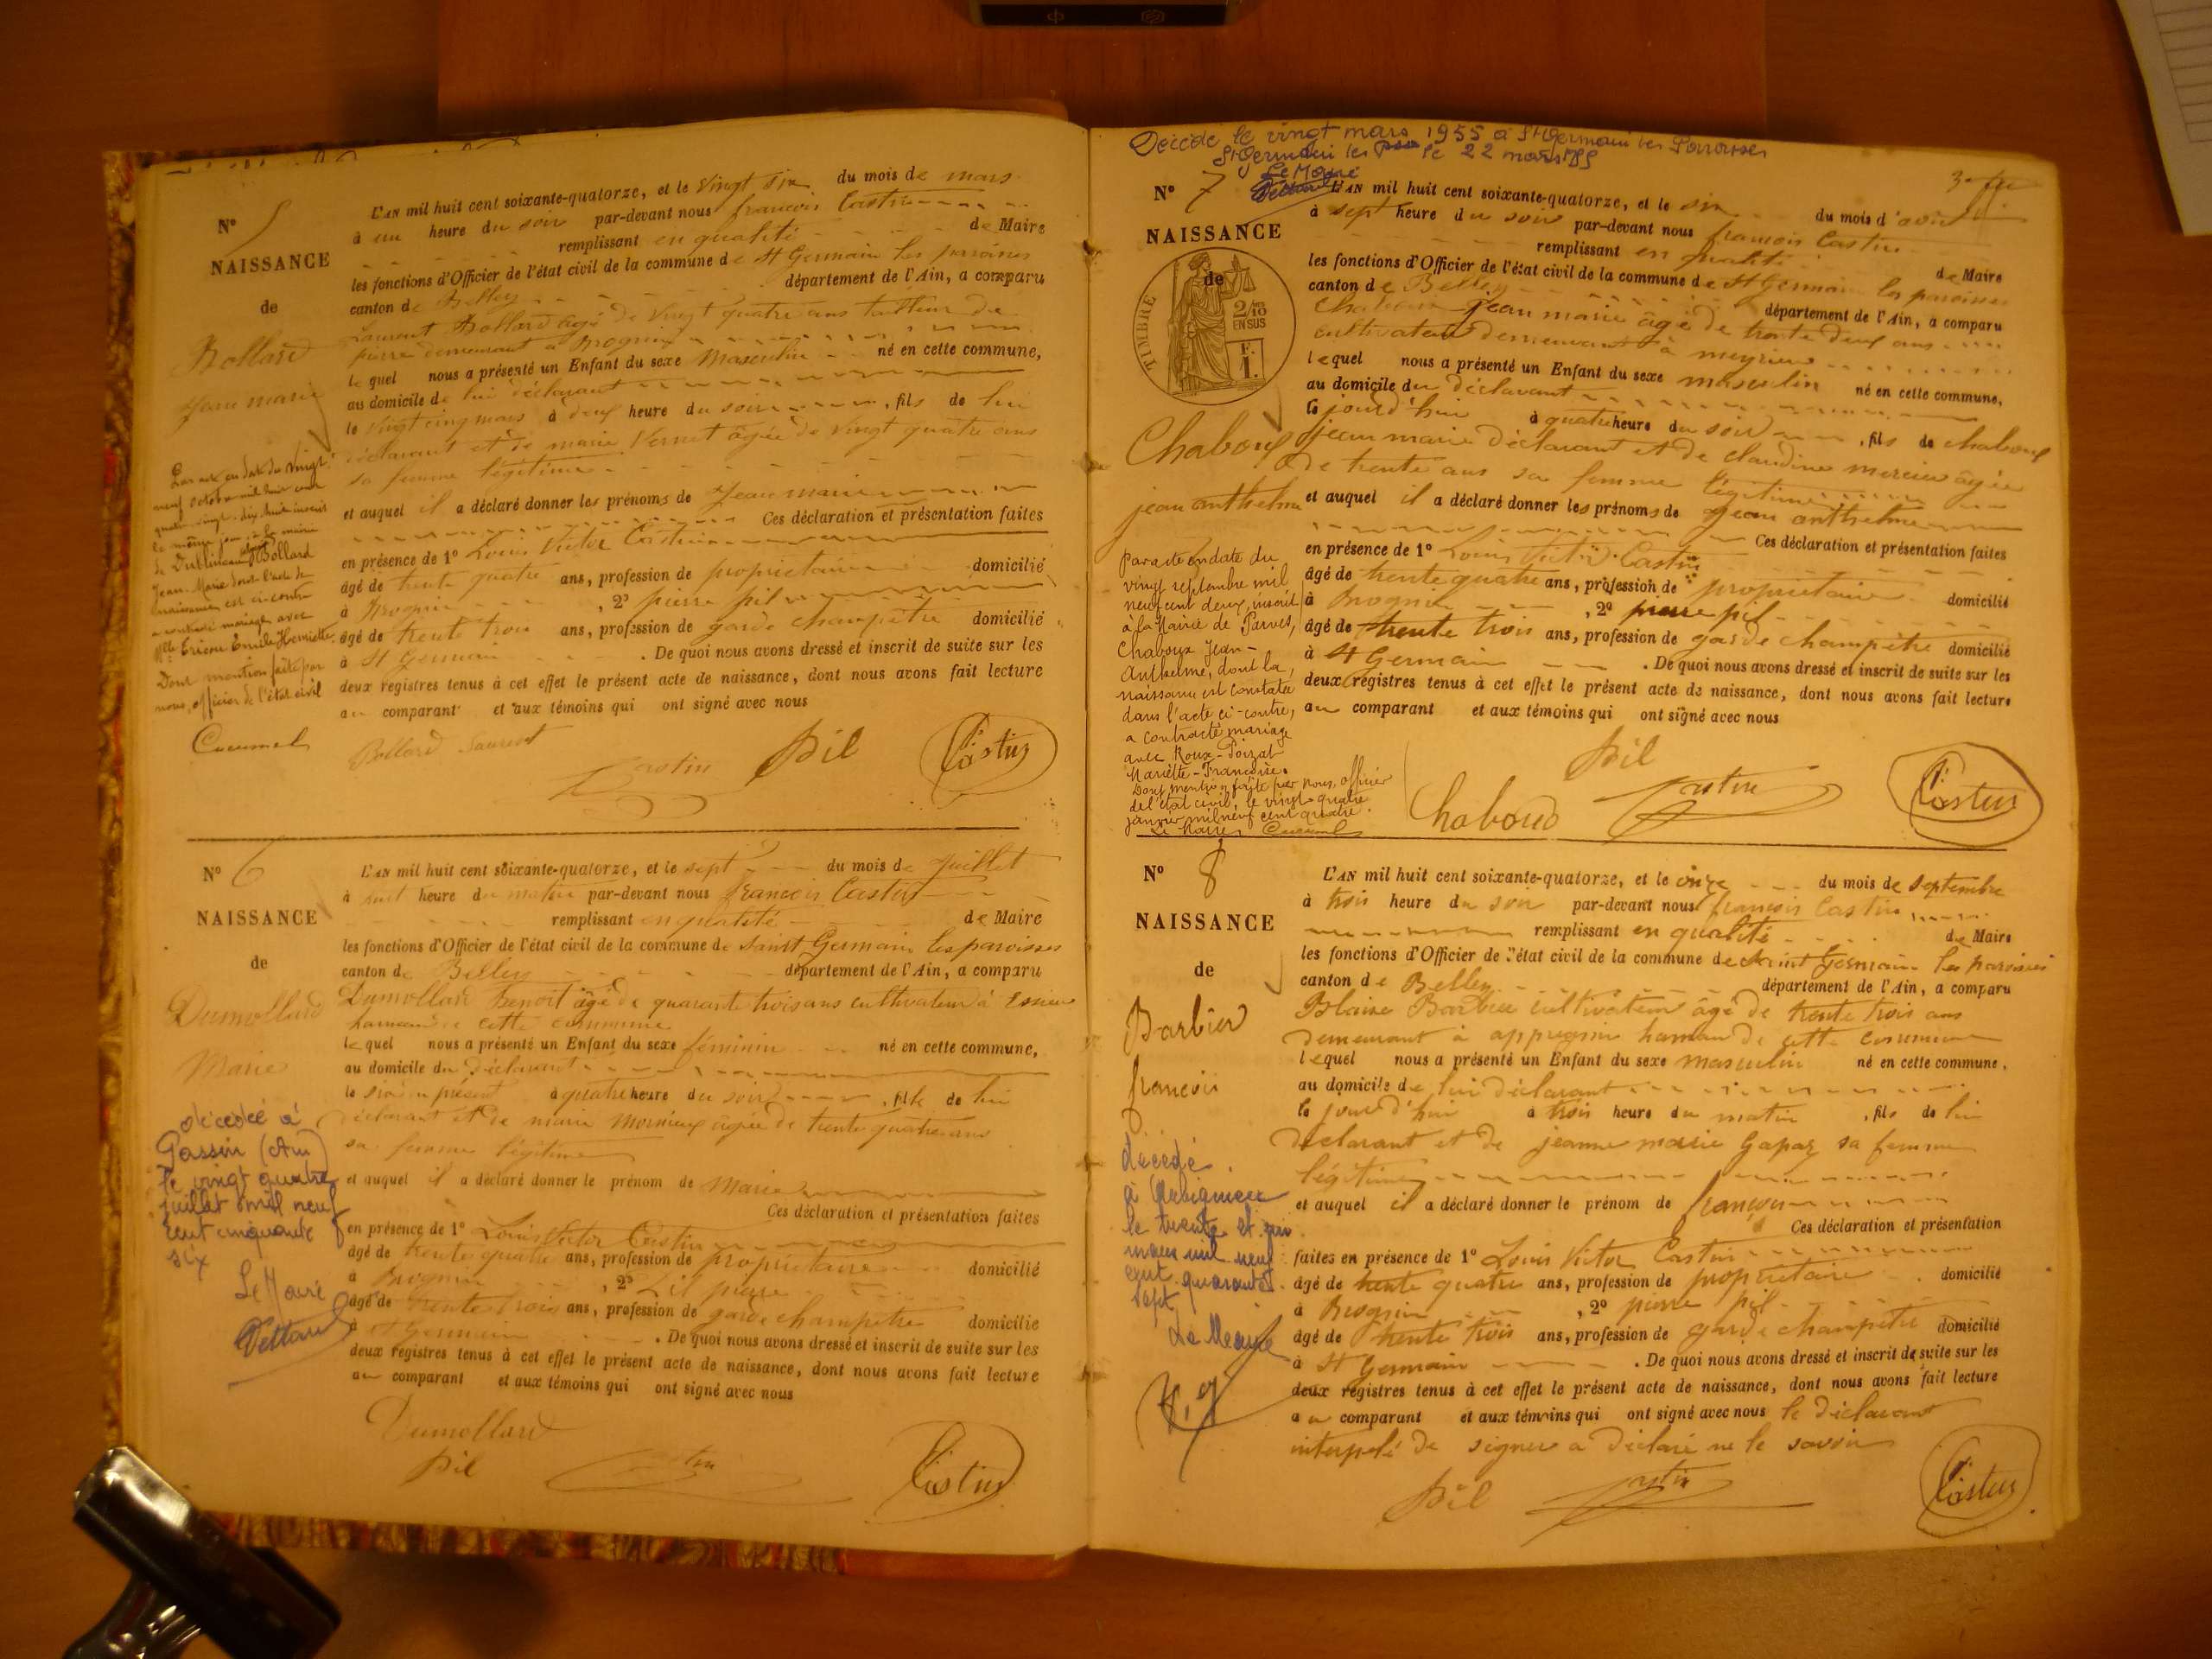 N° 5
NAISSANCE
de
Bollard
Jean marie
L'AN mil huit cent soixante-quatorze, et le vingt six du mois de mars
à un heure du soir par-devant nous francois Castin
remplissant en qualité de Maire
les fonctions d'Officier de l'état civil de la commune de St Germain les paroisses
canton de Belley département de l'Ain, a comparu
Laurent Bollard âgé de vingt quatre ans tailleur de
pierre demeurant à Brognin
lequel nous a présenté un Enfant du sexe masculin né en cette commune,
au domicile de lui déclarant
le vingt cinq mars à deux heure du soir, fils de lui
déclarant et de marie Vernet âgée de vingt quatre ans
sa femme légitime
et auquel il a déclaré donner les prénoms de Jean marie
Ces déclaration et présentation faites
en présence de 1° Louis Victor Castin
âgé de trente quatre ans, profession de propriétaire domicilié
à Brognin, 2° pierre pil
âgé de trente trois ans, profession de garde champêtre domicilié
à St Germain. De quoi nous avons dressé et inscrit de suite sur les
deux registres tenus à cet effet le présent acte de naissance, dont nous avons fait lecture
au comparant et aux témoins qui ont signé avec nous
Bollard Laurent Castin Pil Castin
Par acte en date du vingt
neuf octobre mil huit cent
quatre-vingt-dix-huit inscrit
le même jour à la mairie
Bollard
Jean-Marie dont l'acte de
naissance est ci-contre
a contracté mariage avec
Dont mention faite par
nous, officier de l'état civil
Cucumel
N° 6
NAISSANCE
de
Dumollard
Marie
L'AN mil huit cent soixante-quatorze, et le sept du mois de Juillet
à huit heure du matin par-devant nous francois Castin
remplissant en qualité de Maire
les fonctions d'Officier de l'état civil de la commune de Saint Germain les paroisses
canton de Belley département de l'Ain, a comparu
Dumollard Benoit âgé de quarante trois ans cultivateur à Essieu
hameau de cette commune
lequel nous a présenté un Enfant du sexe féminin né en cette commune,
au domicile du déclarant
le six du présent à quatre heure du soir, fille de lui
déclarant et de marie Mornieux âgée de trente quatre ans
sa femme légitime
et auquel il a déclaré donner le prénom de Marie
Ces déclaration et présentation faites
en présence de 1° Louis Victor Castin
âgé de trente quatre ans, profession de propriétaire domicilié
à Brognin, 2° Pil pierre
âgé de trente trois ans, profession de garde champêtre domicilié
à St Germain. De quoi nous avons dressé et inscrit de suite sur les
deux registres tenus à cet effet le présent acte de naissance, dont nous avons fait lecture
au comparant et aux témoins qui ont signé avec nous
Dumollard
Pil Castin Castin
décédé à
(Ain)
le vingt quatre
juillet mil neuf
cent cinquante
six
Le Maire
Décédé le vingt mars 1955 à St Germain les Paroisses
St Germain les Psses le 22 mars 1955
Le Maire
N° 7
NAISSANCE
de
TIMBRE
2/10
EN SUS
F.
1.
Chaboux
jean anthelme
L'AN mil huit cent soixante-quatorze, et le six du mois d'août
à sept heure du soir par-devant nous francois Castin
remplissant en qualité de Maire
les fonctions d'Officier de l'état civil de la commune de St Germain les paroisses
canton de Belley département de l'Ain, a comparu
Chaboux jean marie âgé de trente deux ans
cultivateur demeurant à meyrieu
lequel nous a présenté un Enfant du sexe masculin né en cette commune,
au domicile du déclarant
le jourd'hui à quatre heure du soir, fils de chaboux
jean marie déclarant et de claudine mercier âgée
de trente ans sa femme légitime
et auquel il a déclaré donner les prénoms de Jean anthelme
Ces déclaration et présentation faites
en présence de 1° Louis Victor Castin
âgé de trente quatre ans, profession de propriétaire domicilié
à Brognin, 2° pierre pil
âgé de trente trois ans, profession de garde champêtre domicilié
à St Germain. De quoi nous avons dressé et inscrit de suite sur les
deux registres tenus à cet effet le présent acte de naissance, dont nous avons fait lecture
au comparant et aux témoins qui ont signé avec nous
Pil
Chaboud Castin Castin
Par acte en date du
vingt septembre mil
neuf cent deux, inscrit
à la Mairie de Parves,
Chaboux Jean-
Anthelme, dont la
naissance est constatée
dans l'acte ci-contre,
a contracté mariage
avec Roux-Poizat
Mariette-Françoise.
Dont mention faite par nous, officier
de l'état civil, le vingt-quatre
janvier mil neuf cent quatre.
Le Maire, Cucumel
N° 8
NAISSANCE
de
Barbier
francois
L'AN mil huit cent soixante-quatorze, et le onze du mois de septembre
à trois heure du soir par-devant nous francois Castin
remplissant en qualité de Maire
les fonctions d'Officier de l'état civil de la commune de Saint Germain les paroisses
canton de Belley département de l'Ain, a comparu
Blaise Barbier cultivateur âgé de trente trois ans
demeurant à appregnin hameau de cette commune
lequel nous a présenté un Enfant du sexe masculin né en cette commune,
au domicile de lui déclarant
le jourd'hui à trois heure du matin, fils de lui
déclarant et de jeanne marie Gapaz sa femme
légitime
et auquel il a déclaré donner le prénom de françois
Ces déclaration et présentation
faites en présence de 1° Louis Victor Castin
âgé de trente quatre ans, profession de propriétaire domicilié
à Brognin, 2° pierre pil
âgé de trente trois ans, profession de garde champêtre domicilié
à St Germain. De quoi nous avons dressé et inscrit de suite sur les
deux registres tenus à cet effet le présent acte de naissance, dont nous avons fait lecture
au comparant et aux témoins qui ont signé avec nous le déclarant
interpelé de signer a déclaré ne le savoir
Pil Castin Castin
décédé
à Arbignieu
le trente et un
mars mil neuf
cent quarante
sept
Le Maire